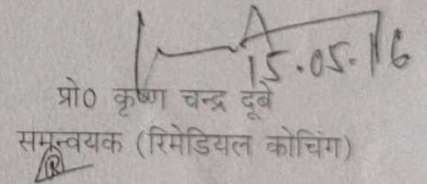 15.05.16
प्रो0 कृष्ण चन्द्र दूबे
समन्वयक (रिमेडियल कोचिंग)
R